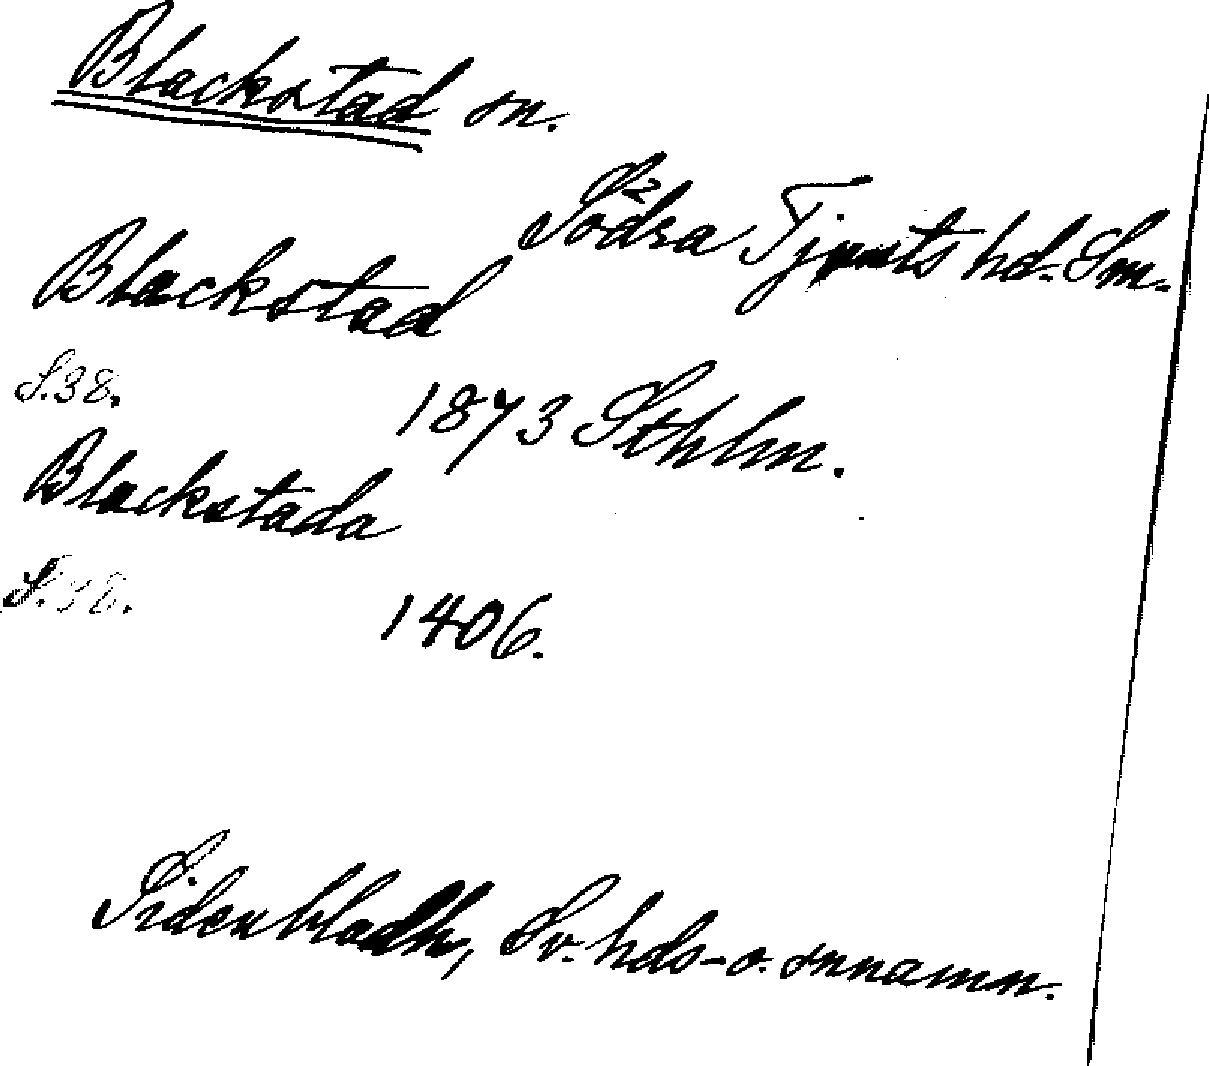 Blackstad sn.
Södra Tjusts hd. Sm.
Blackstad
S. 38.
1873 Sthlm.
Blackstada
S. 38.
1406.
Sidenbladh, Sv. hds- o. snnamn.